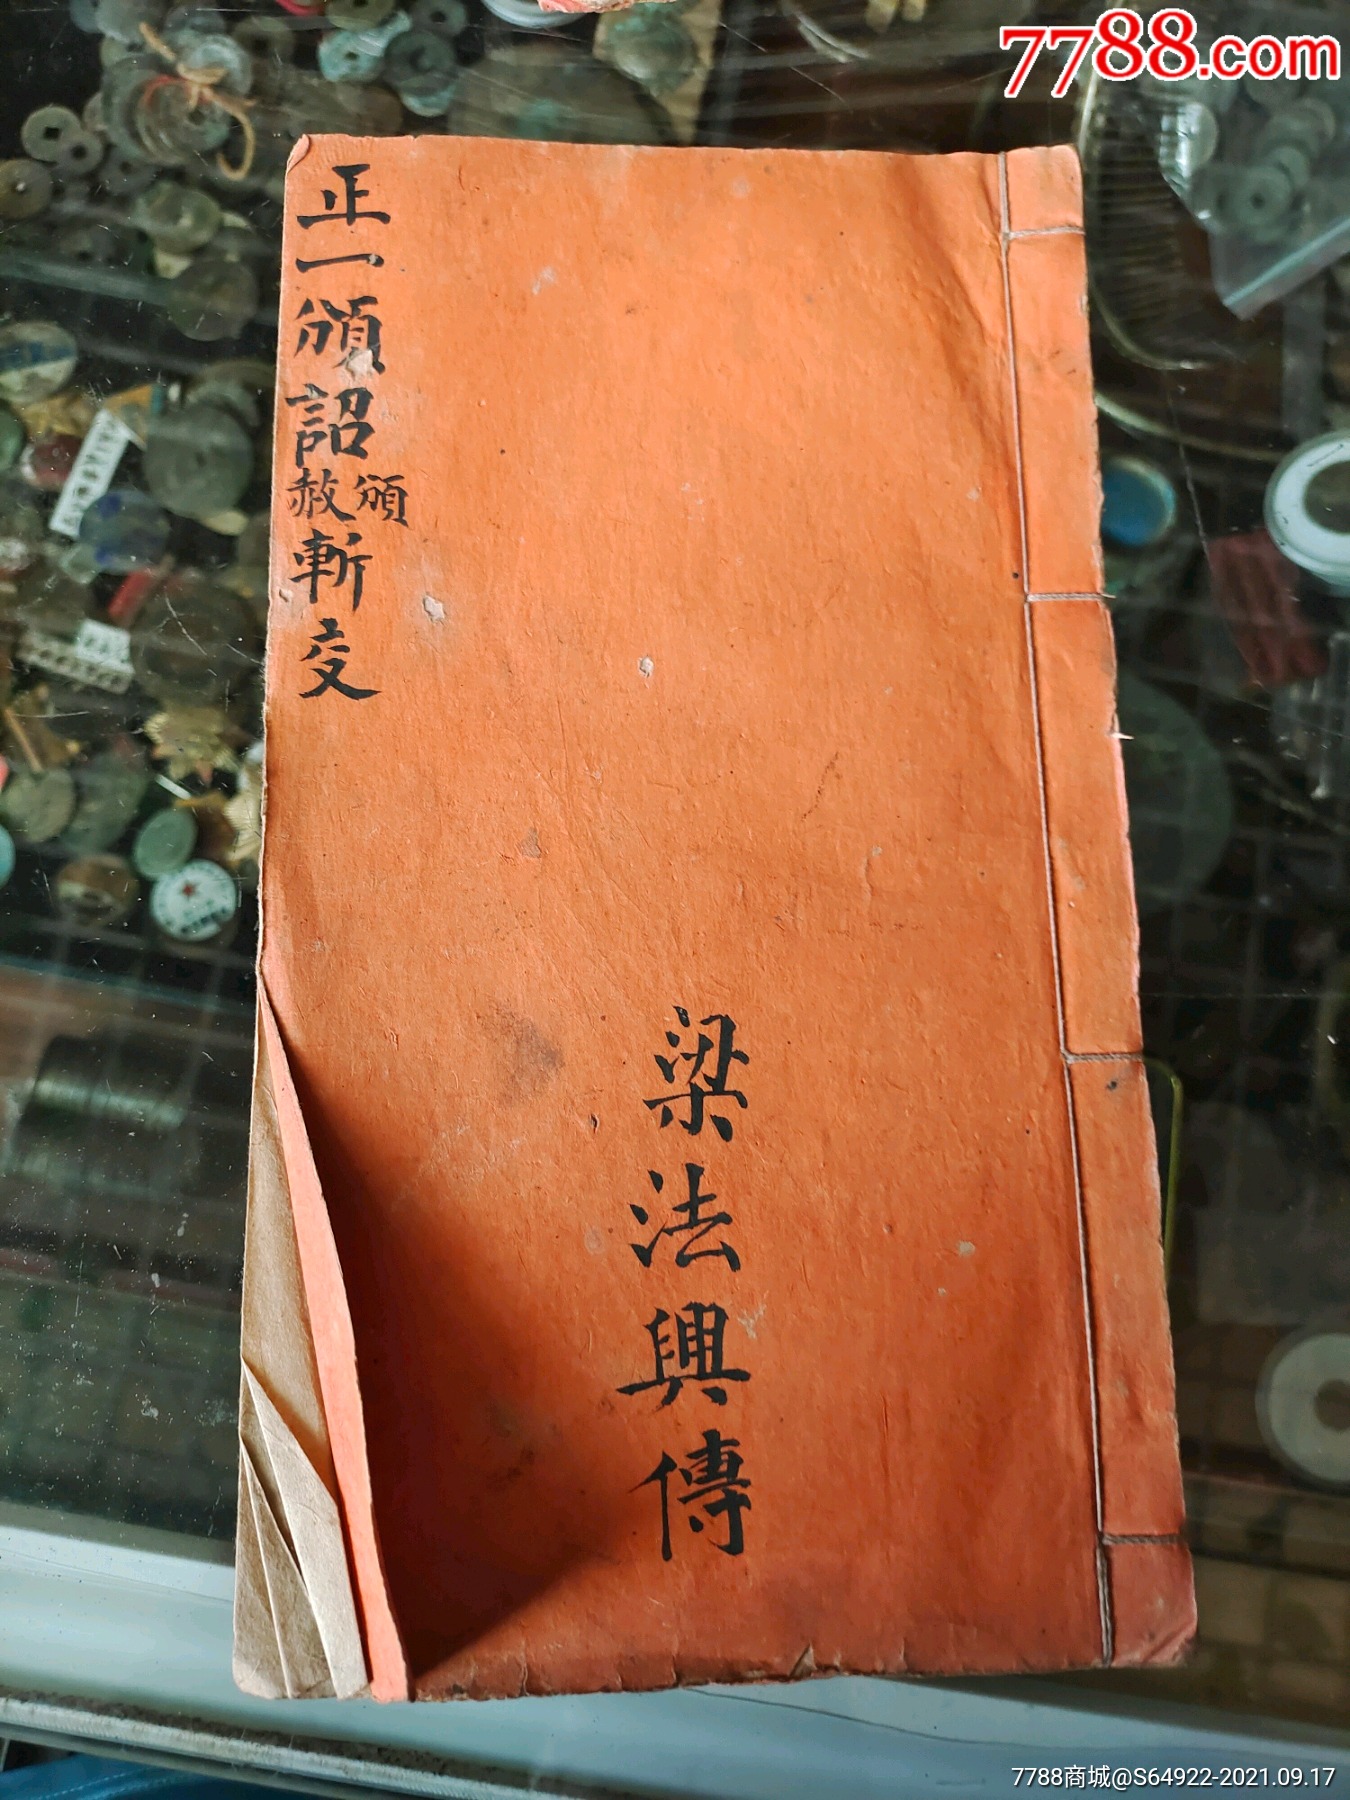 7788.com
正一頒詔頒赦斬
梁法興傳
7788商城@S64922-2021.09.17